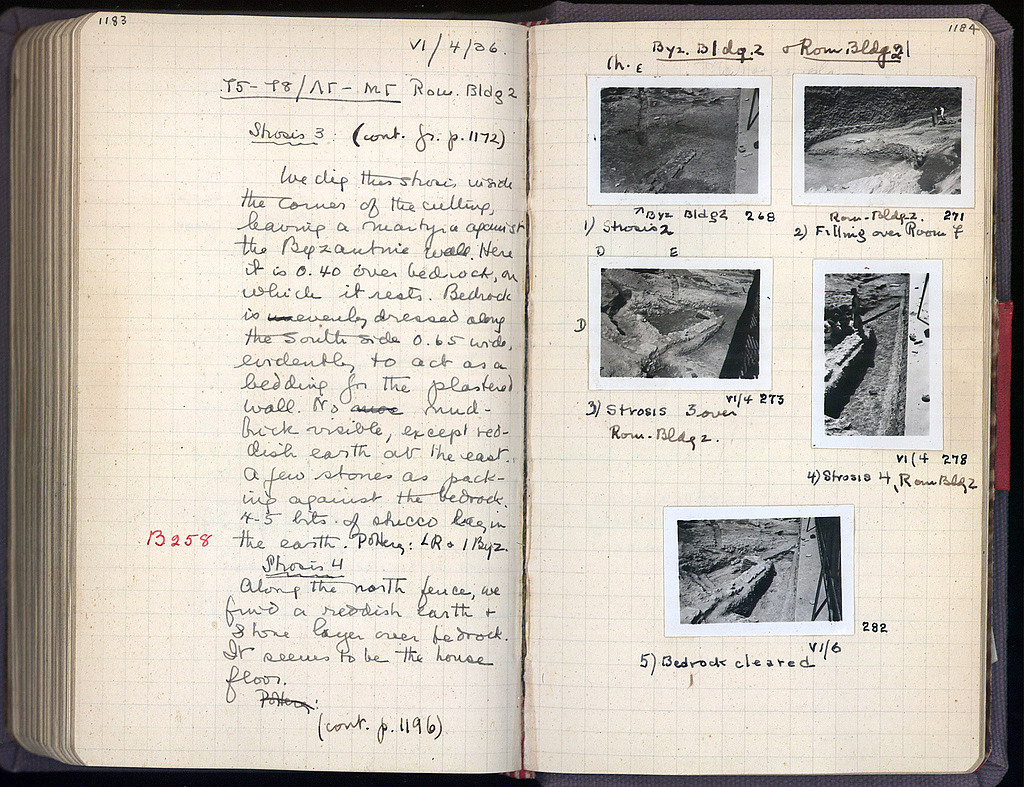 1183
VI/4/36.
Rom. Bldg 2
Strosis 3: (cont. fr. p. 1172)
We dig this strosis inside
the corner of the cutting,
leaving a martyra against
the Byzantine wall. Here
it is 0.40 over bedrock, on
which it rests. Bedrock
is unevenly dressed along
the South side 0.65 wide,
evidently to act as a
bedding for the plastered
wall. No more mud-
brick visible, except red-
dish earth at the east.
A few stones as pack-
ing against the bedrock.
4-5 bits of stucco lay in
B258 the earth. Pottery: LR & 1 Byz.
Strosis 4
Along the north fence, we
find a reddish earth &
stone layer over bedrock.
It seems to be the house
floor.
Pottery:
(cont. p. 1196)
1184
Byz. Bldg. 2 & Rom Bldg 2
Ch. E
Byz Bldg 2 268
1) Strosis 2
Rom-Bldg 2. 271
2) Filling over Room 7
D E
D
VI/4 273
3) Strosis 3 over
Rom-Bldg 2.
VI/4 278
4) Strosis 4, Rom Bldg 2
282
VI/6
5) Bedrock cleared